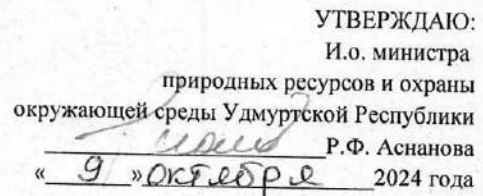 УТВЕРЖДАЮ:
И.о. министра
природных ресурсов и охраны
окружающей среды Удмуртской Республики
Р.Ф. Аснанова
« 9 » октября 2024 года